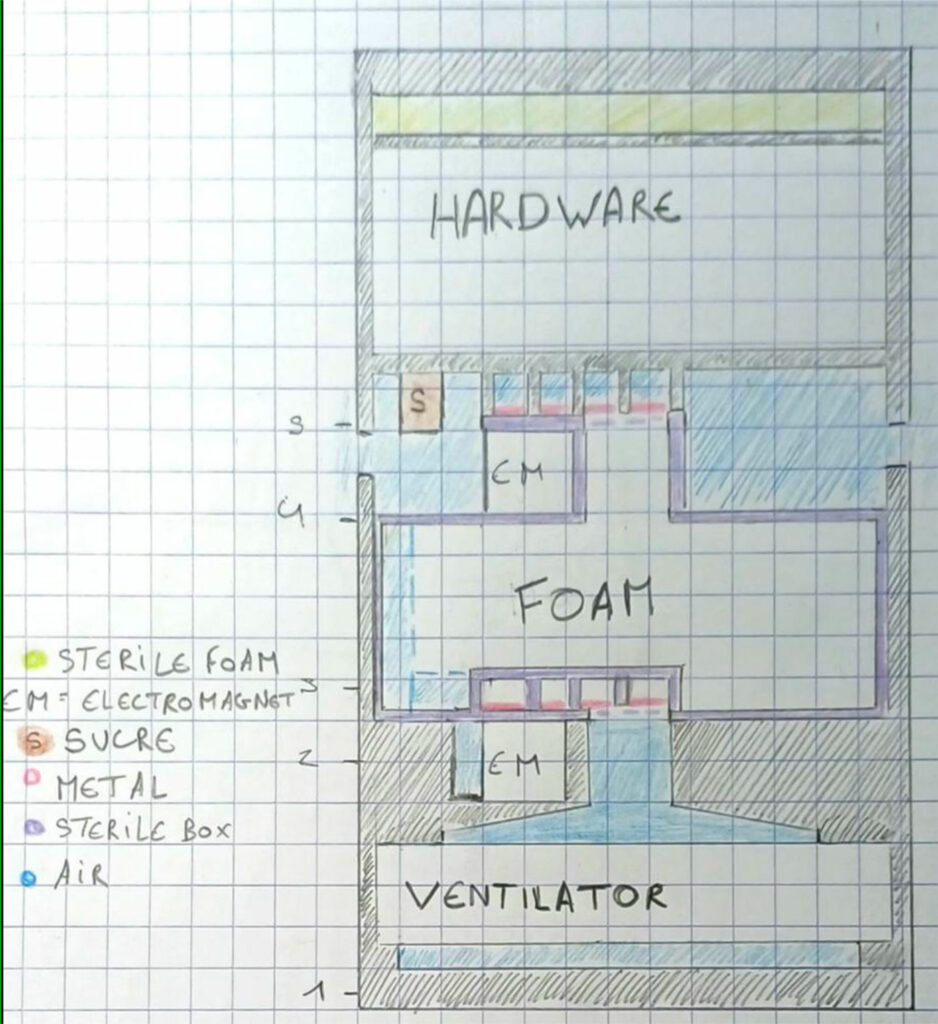 HARDWARE
S
5
EM
4
FOAM
STERILE FOAM
EM = ELECTROMAGNET
3
S SUCRE
METAL
STERILE BOX
AIR
2
EM
VENTILATOR
1